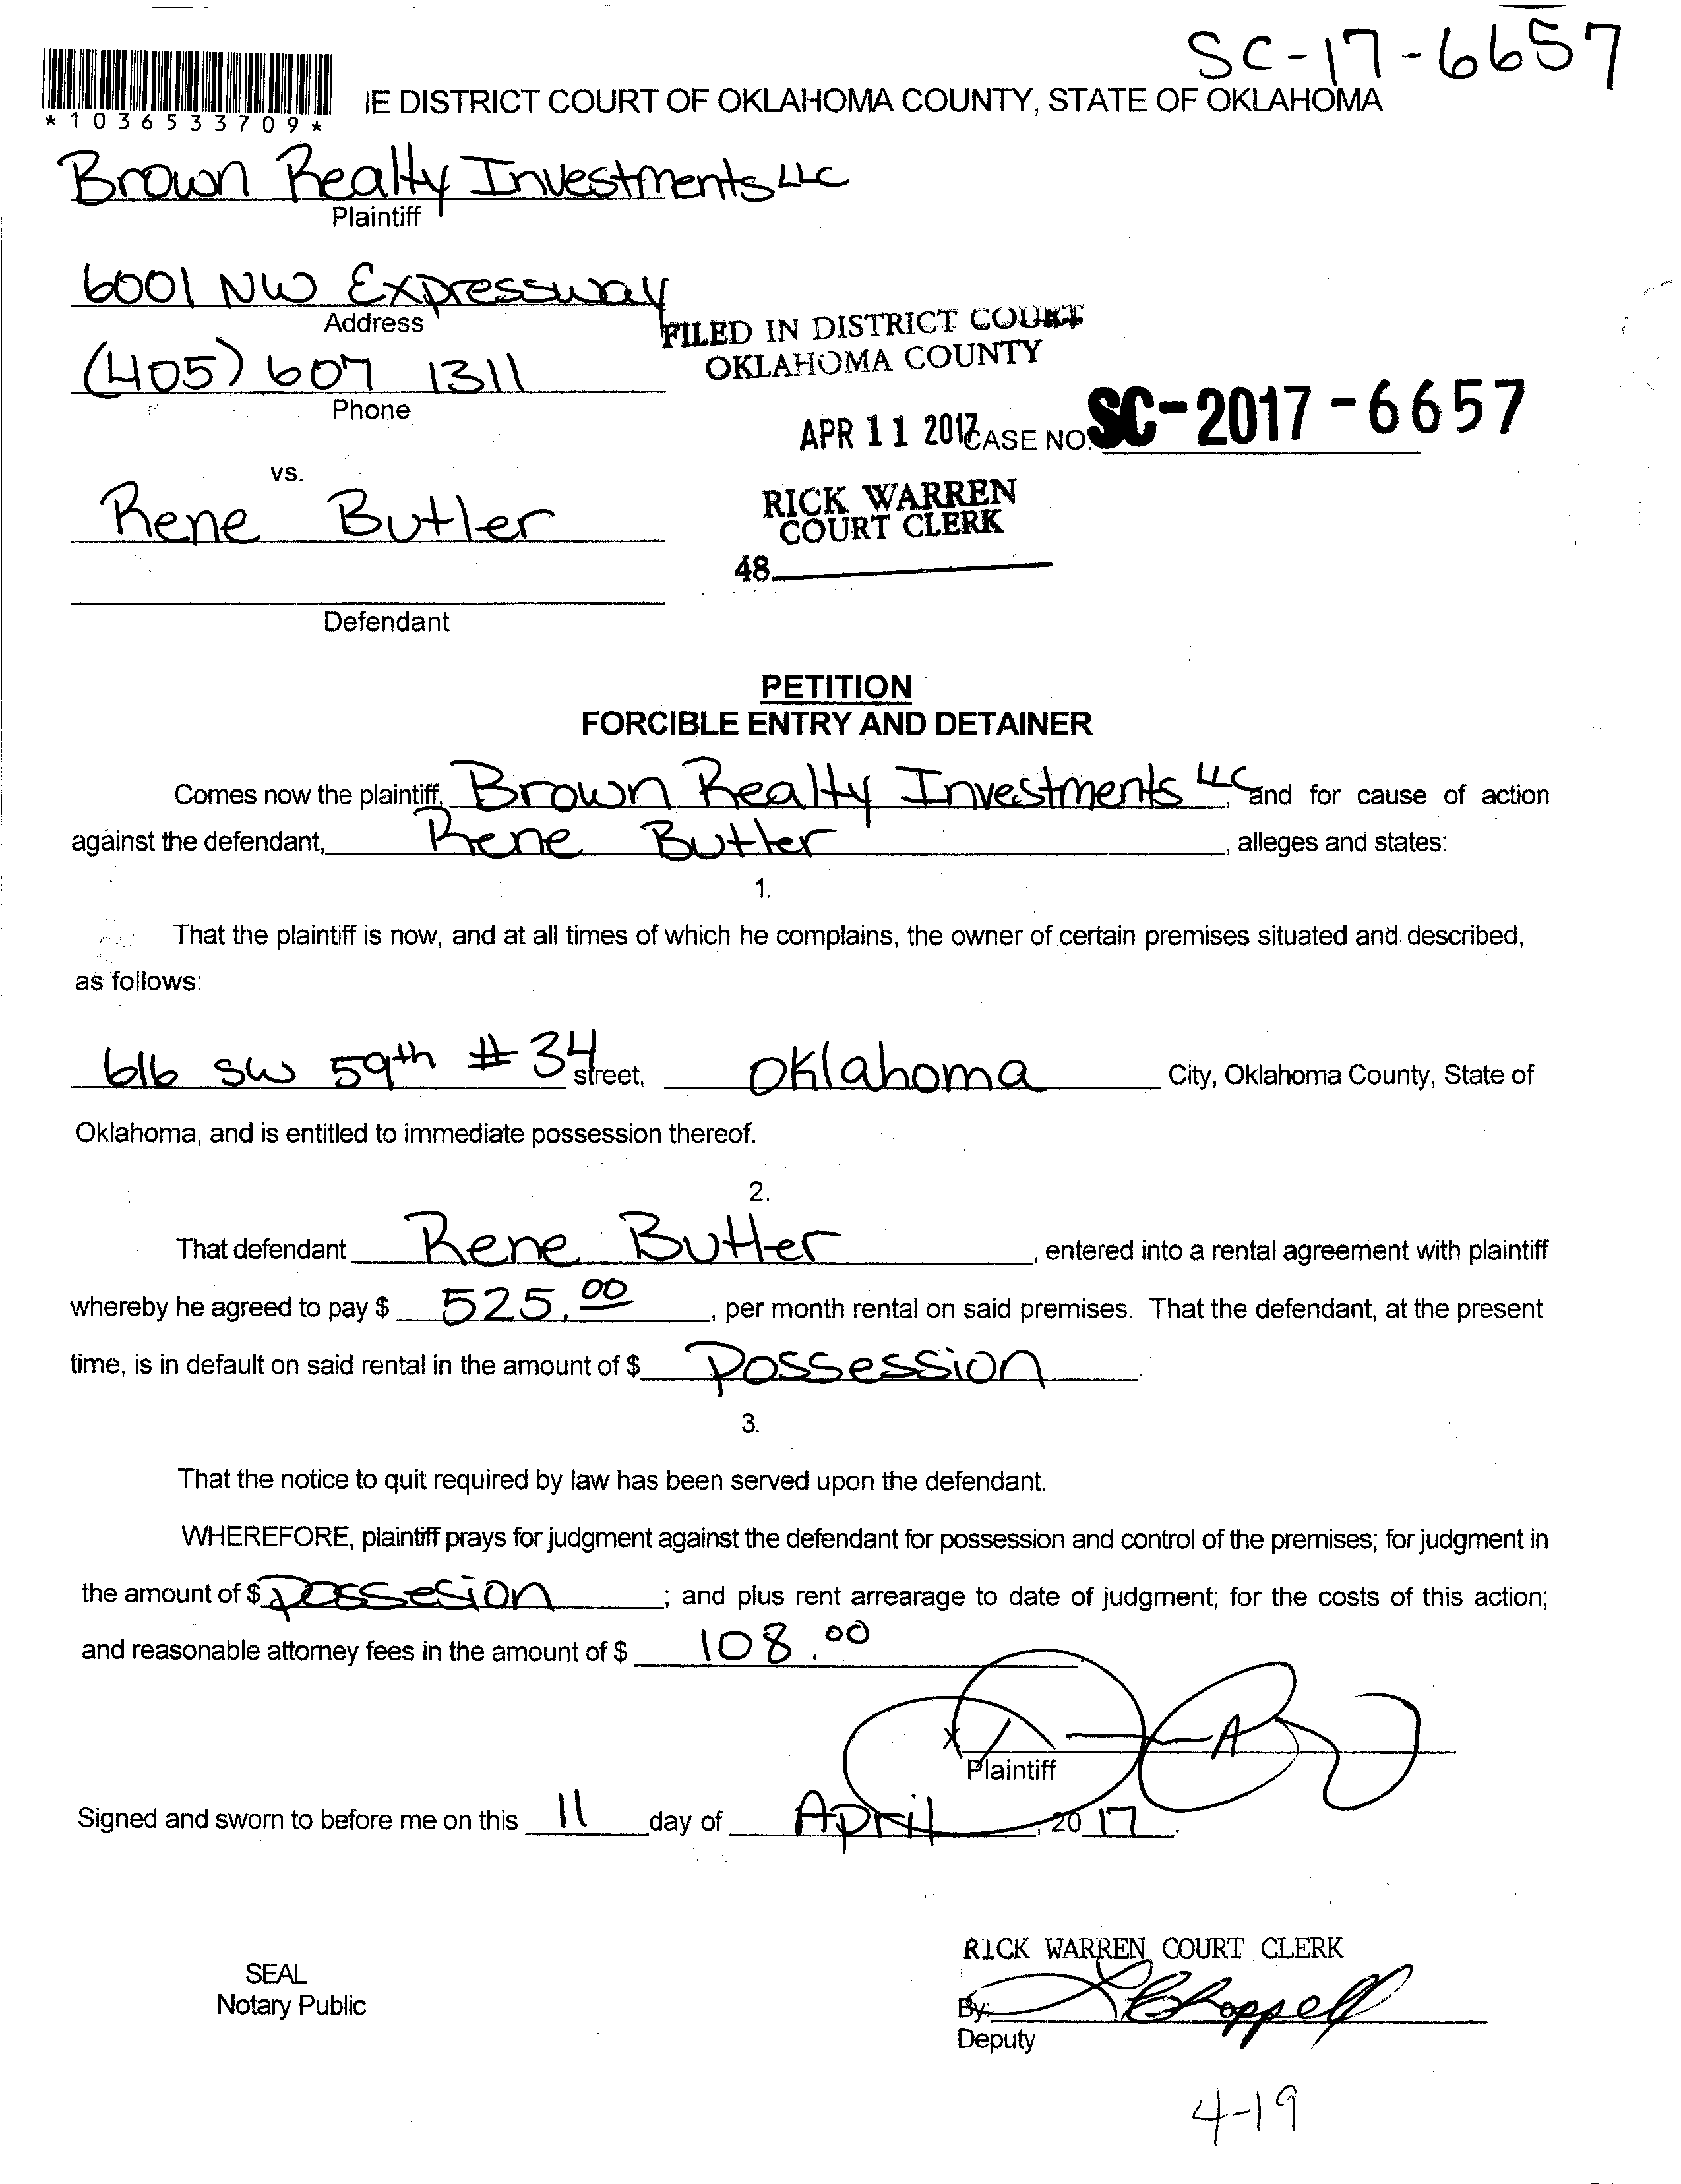 SC-17-6657
*1036533709*
IE DISTRICT COURT OF OKLAHOMA COUNTY, STATE OF OKLAHOMA
Brown Realty Investments LLC
Plaintiff
6001 NW Expressway
Address
FILED IN DISTRICT COURT
OKLAHOMA COUNTY
(405) 607 1311
Phone
APR 11 2017
CASE NO. SC-2017-6657
vs.
RICK WARREN
COURT CLERK
Rene Butler
48
Defendant
PETITION
FORCIBLE ENTRY AND DETAINER
Comes now the plaintiff, Brown Realty Investments LLC, and for cause of action
against the defendant, Rene Butler, alleges and states:
1.
That the plaintiff is now, and at all times of which he complains, the owner of certain premises situated and described,
as follows:
616 SW 59th # 34 street, Oklahoma City, Oklahoma County, State of
Oklahoma, and is entitled to immediate possession thereof.
2.
That defendant Rene Butler, entered into a rental agreement with plaintiff
whereby he agreed to pay $ 525.00, per month rental on said premises. That the defendant, at the present
time, is in default on said rental in the amount of $ Possession.
3.
That the notice to quit required by law has been served upon the defendant.
WHEREFORE, plaintiff prays for judgment against the defendant for possession and control of the premises; for judgment in
the amount of $ possesion; and plus rent arrearage to date of judgment; for the costs of this action;
and reasonable attorney fees in the amount of $ 108.00
X
Plaintiff
Signed and sworn to before me on this 11 day of April, 20 17.
RICK WARREN COURT CLERK
SEAL
Notary Public
By: Chappell
Deputy
4-19